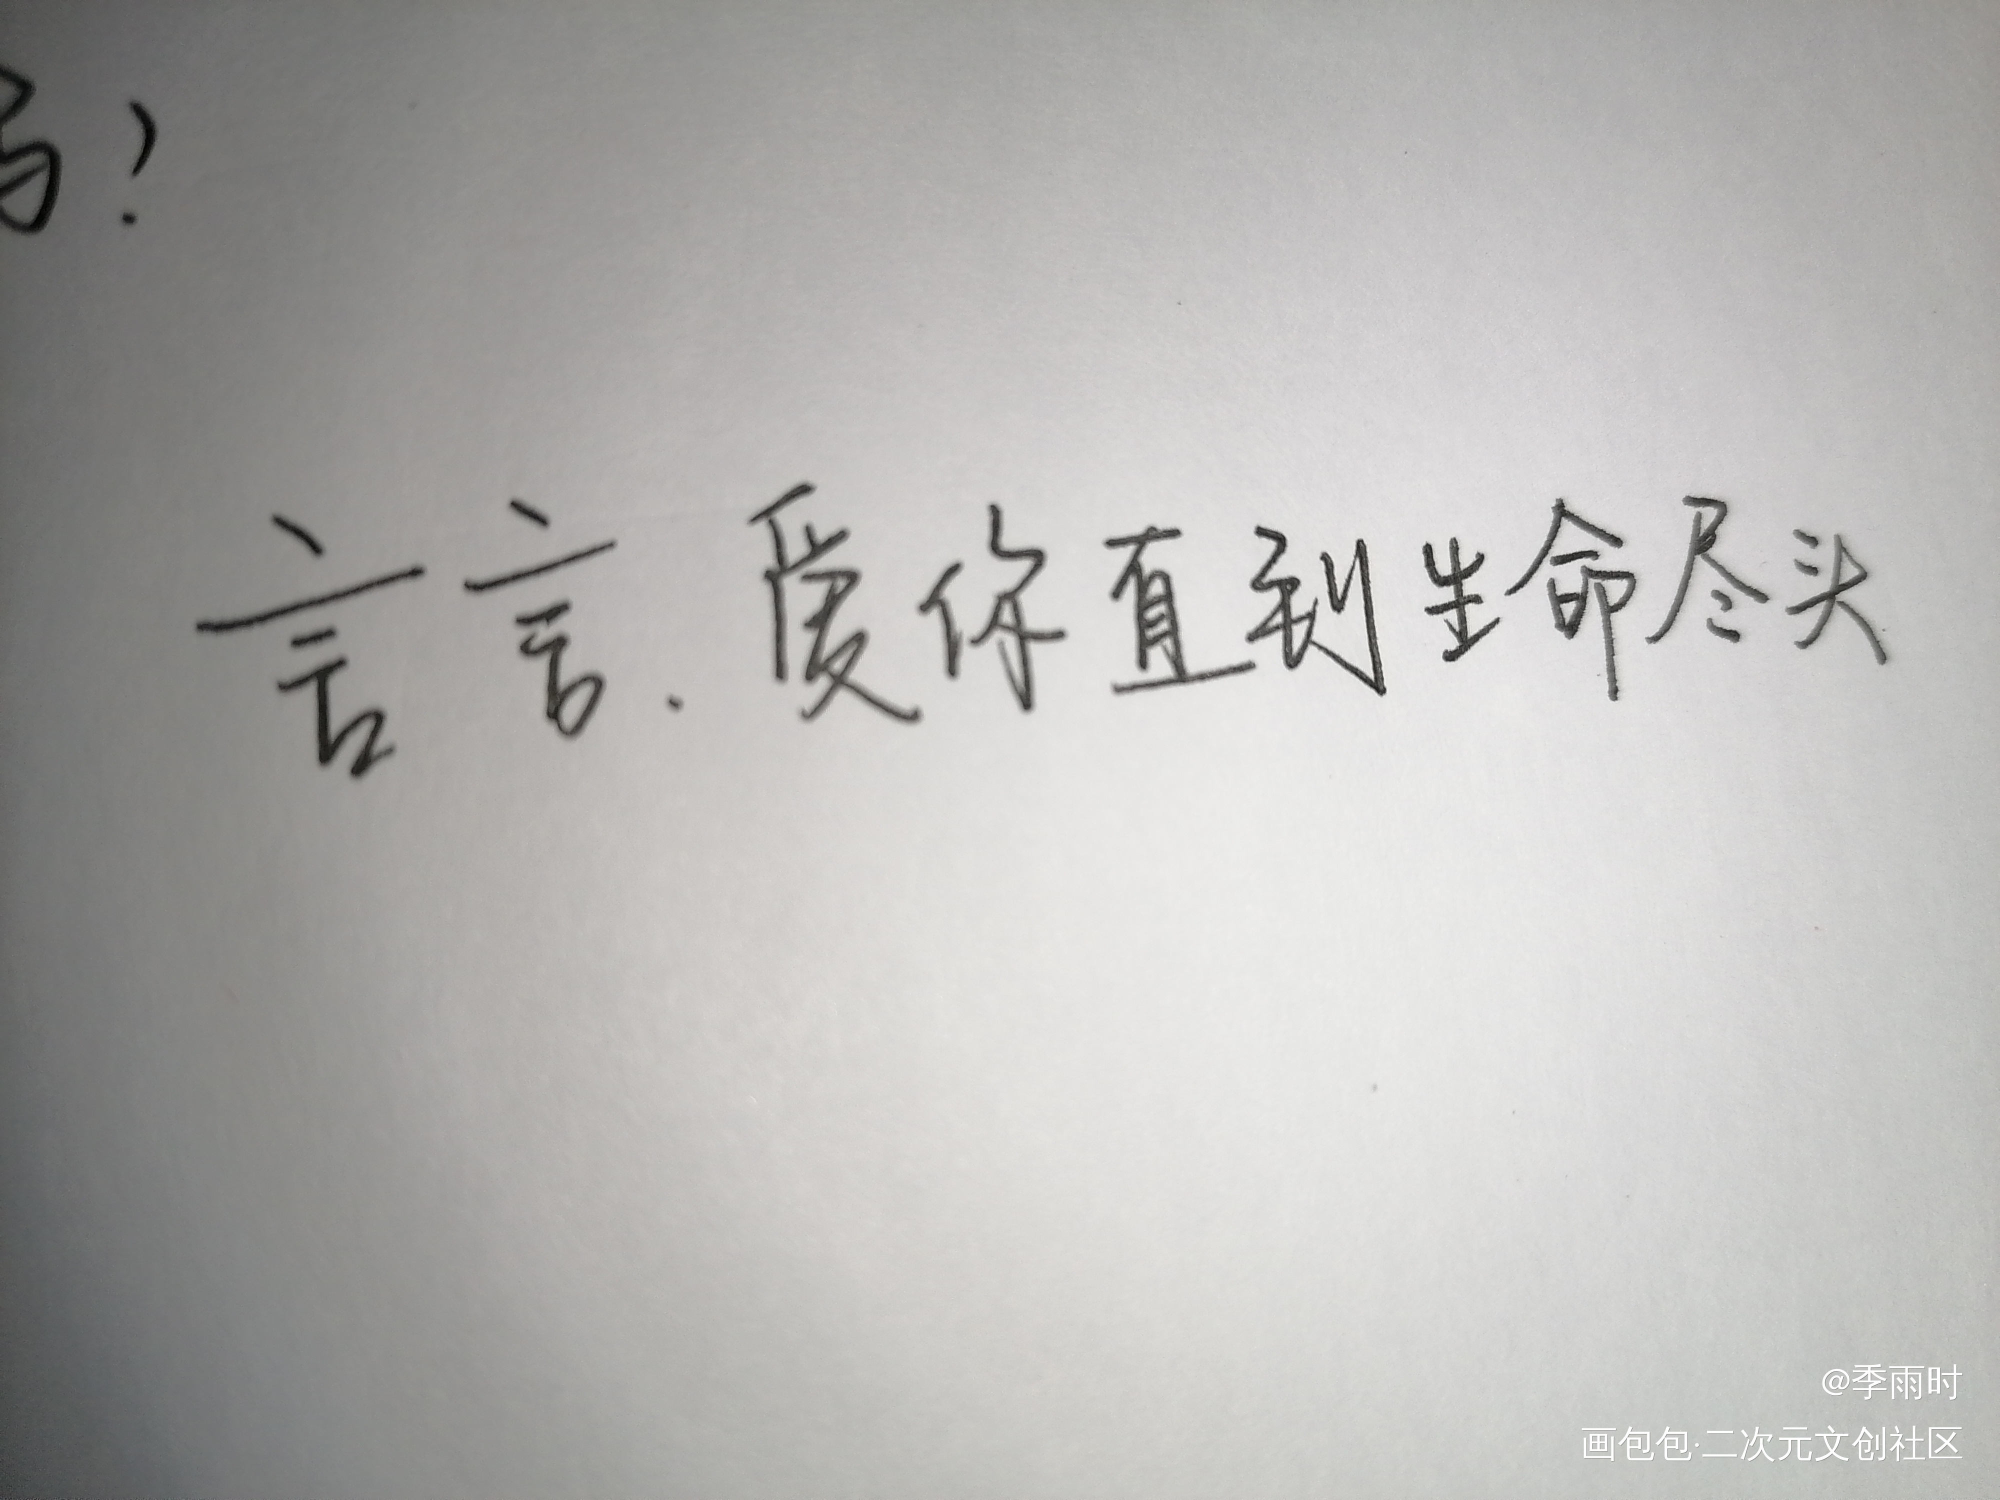 吗？
言言．爱你直到生命尽头
@季雨时
画包包·二次元文创社区